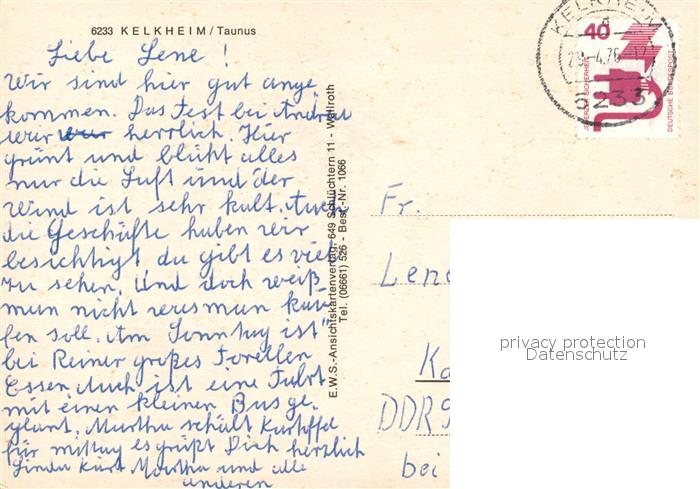 6233 KELKHEIM/Taunus
Liebe Lene!
Wir sind hier gut ange
kommen. Das Fest bei Andrea
wir war herrlich. Hier
grünt und blüht alles
nur die Luft und der
Wind ist sehr kalt. Auch
die Geschäfte haben wir
besichtigt da gibt es viel
zu sehen. Und doch weiß
man nicht was man kau
fen soll. Am Sonntag ist
bei Reiner großes Forellen
Essen. Auch ist eine Fahrt
mit einen kleinen Bus ge
plant. Martha schält Kartoffel
für mittag es grüßt Dich herzlich
Linda Kurt Martha und alle
anderen
E.W.S.-Ansichtskartenverlag, 649 Schlüchtern 11 - Wallroth
Tel. (06661) 526 - Best.-Nr. 1066
KELKHEIM
a
29.-4.76
6233
40
JEDERZEIT SICHERHEIT
DEUTSCHE BUNDESPOST
Fr.
Lene
Ka
DDR 9
bei
privacy protection
Datenschutz